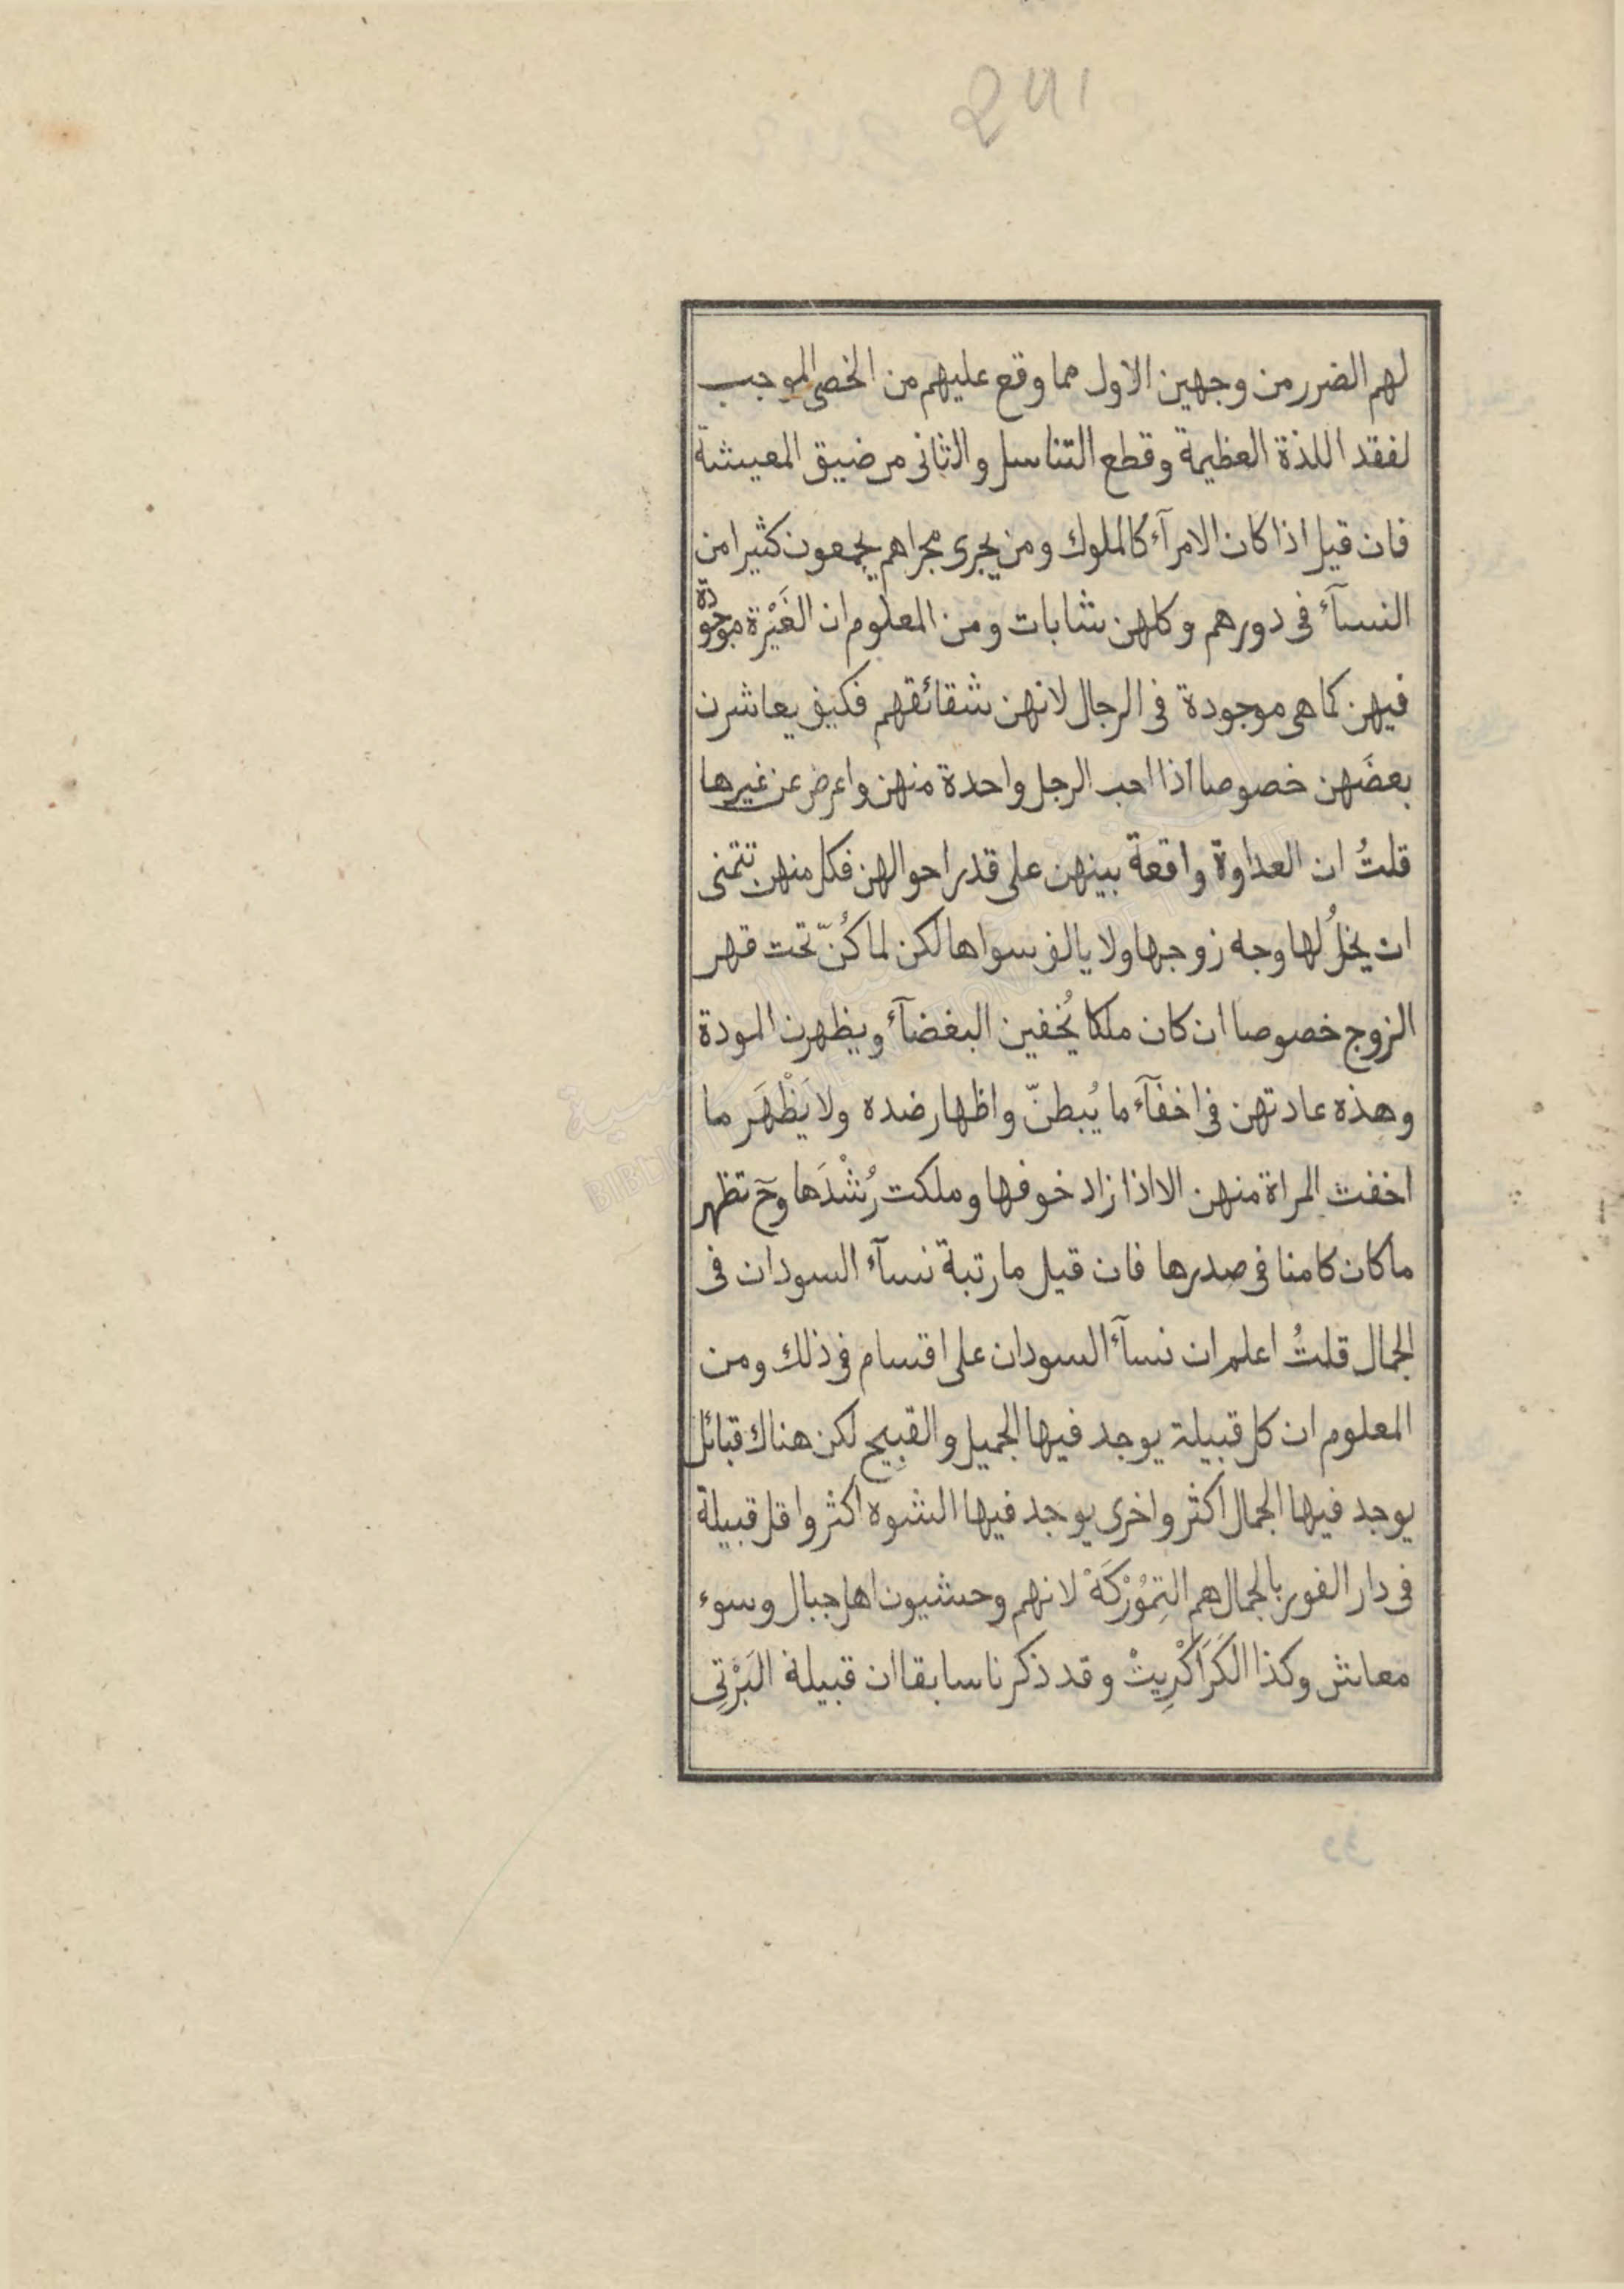 لهم الضرر من وجهين الاول مما وقع عليهم من الخصى الموجب
لفقد اللذة العظيمة وقطع التناسل والثانى من ضيق المعيشة
فان قيل اذا كان الامرآء كالملوك ومن يجرى مجراهم يجمعون كثيرا من
النسآء فى دورهم وكلهن شابات ومن المعلوم ان الغَيْرة موجودة
فيهن كما هى موجودة فى الرجال لانهن شقائقهم فكيف يعاشرن
بعضَهن خصوصا اذا احب الرجل واحدة منهن واعرض عن غيرها
قلتُ ان العداوة واقعة بينهن على قدر احوالهن فكل منهن تتمنى
ان يخلُ لها وجه زوجها ولا يالف سواها لكن لما كُنّ تحت قهر
الزوج خصوصا ان كان ملكا يُخفين البغضآء ويظهرن المودة
وهذه عادتهن فى اخفآء ما يُبطنّ واظهار ضده ولا يَظْهَر ما
اخفت المراة منهن الا اذا زاد خوفها وملكت رُشْدَها وحٓ تظهر
ما كان كامنا فى صدرها فان قيل ما رتبة نسآء السودان فى
الجمال قلتُ اعلم ان نسآء السودان على اقسام فى ذلك ومن
المعلوم ان كل قبيلة يوجد فيها الجميل والقبيح لكن هناك قبائل
يوجد فيها الجمال اكثر واخرى يوجد فيها الشوه اكثر واقل قبيلة
فى دار الفور بالجمال هم التِمُوْرْكَهْ لانهم وحشيون اهل جبال وسوء
معاش وكذا الكَرَاكْرِيتْ وقد ذكرنا سابقا ان قبيلة البَرْتِى